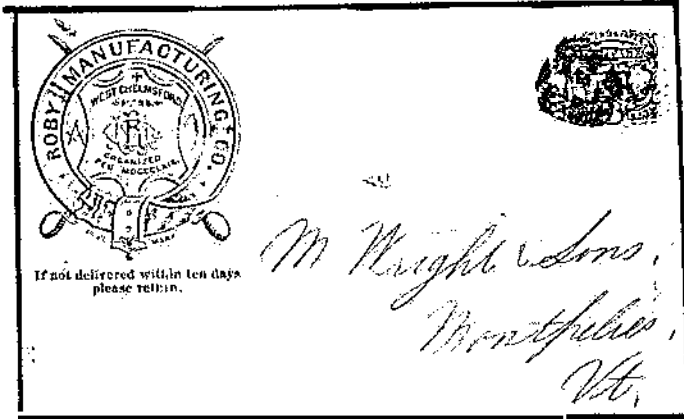 ROBY MANUFACTURING CO.
WEST CHELMSFORD
MASS.
ORGANIZED
If not delivered within ten days
please return.
M Wright & Sons,
Montpelier,
Vt.